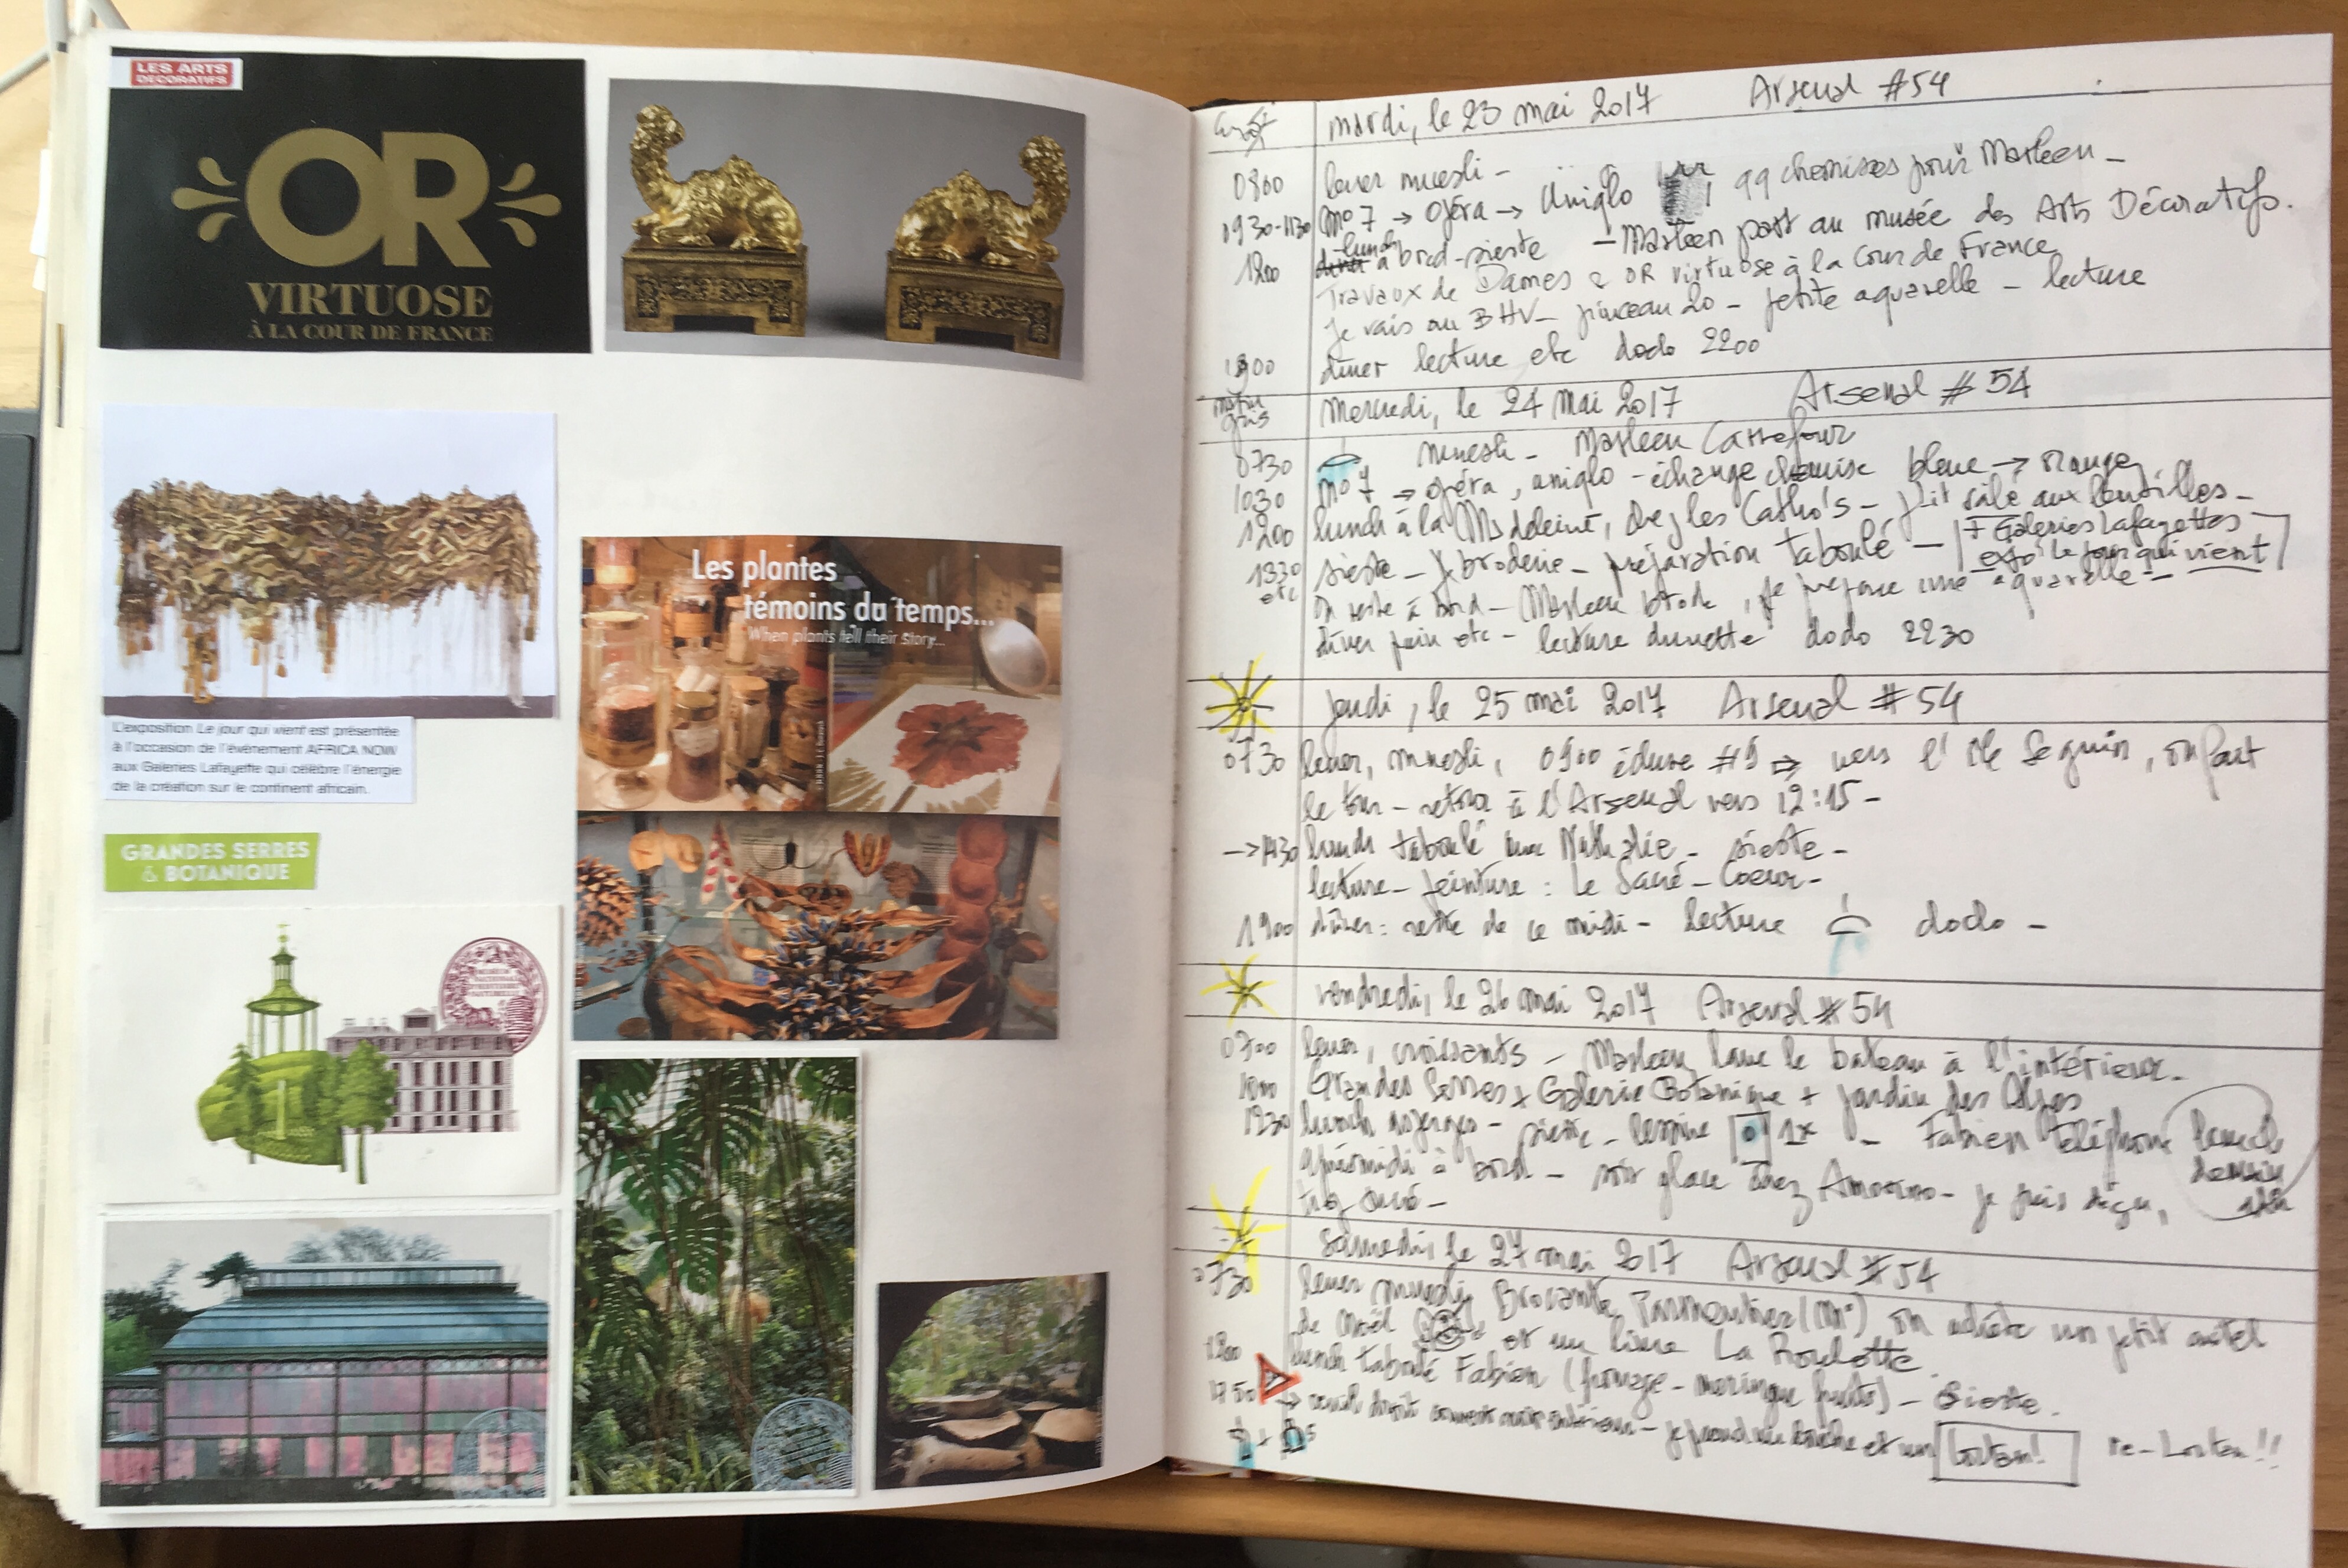 LES ARTS
DECORATIFS
OR
VIRTUOSE
À LA COUR DE FRANCE
L'exposition Le jour qui vient est présentée
à l'occasion de l'événement AFRICA NOW
aux Galeries Lafayette qui célèbre l'énergie
de la création sur le continent africain.
GRANDES SERRES
& BOTANIQUE
Les plantes
témoins du temps...
When plants tell their story...
mardi, le 23 mai 2017 Arsenal #54
0800 lever muesli -
0930-1130 Mo 7 → Opéra → Uniqlo 99 chemises pour Marleen -
1200 lunch à bord - sieste - Marleen part au musée des Arts Décoratifs.
Travaux de Dames & OR virtuose à la Cour de France
Je vais au BHV - pinceau 20 - petite aquarelle - lecture
1900 dîner lecture etc dodo 2200
mercredi, le 24 mai 2017 Arsenal #54
0730 muesli - Marleen Carrefour
1030 Mo 7 → opéra, uniqlo - échange chemise bleue → orange
1200 lunch à la Madeleine, chez les Catho's - petit salé aux lentilles -
+ Galeries Lafayettes
1330 sieste - broderie - préparation taboulé - expo le jour qui vient
etc on reste à bord - Marleen brode, je prépare une aquarelle -
dîner pain etc - lecture dunette dodo 2230
jeudi, le 25 mai 2017 Arsenal #54
0730 lever, muesli, 0900 écluse #9 ⇒ vers l'île Seguin, on fait
le tour - retour à l'Arsenal vers 12:15 -
→ 1430 lunch taboulé avec Nathalie - sieste -
lecture - peinture : Le Sacré-Coeur -
1900 dîner : reste de ce midi - lecture dodo -
vendredi, le 26 mai 2017 Arsenal #54
0700 lever, croissants - Marleen lave le bateau à l'intérieur -
1000 Grandes Serres + Galerie Botanique + jardin des Alpes
1230 lunch asperges - sieste - lessive 1x - Fabien téléphone lunch
demain
aprèsmidi à bord - soir glace chez Amorino - je suis déçu,
trop sucré -
samedi, le 27 mai 2017 Arsenal #54
0730 lever muesli Brocante Parmentier (Mo) on achète un petit autel
de Noël et un livre La Roulotte
1200 lunch taboulé Fabien (fromage - meringue fruits) - Sieste.
1750 → je prend une bûche et un
re-